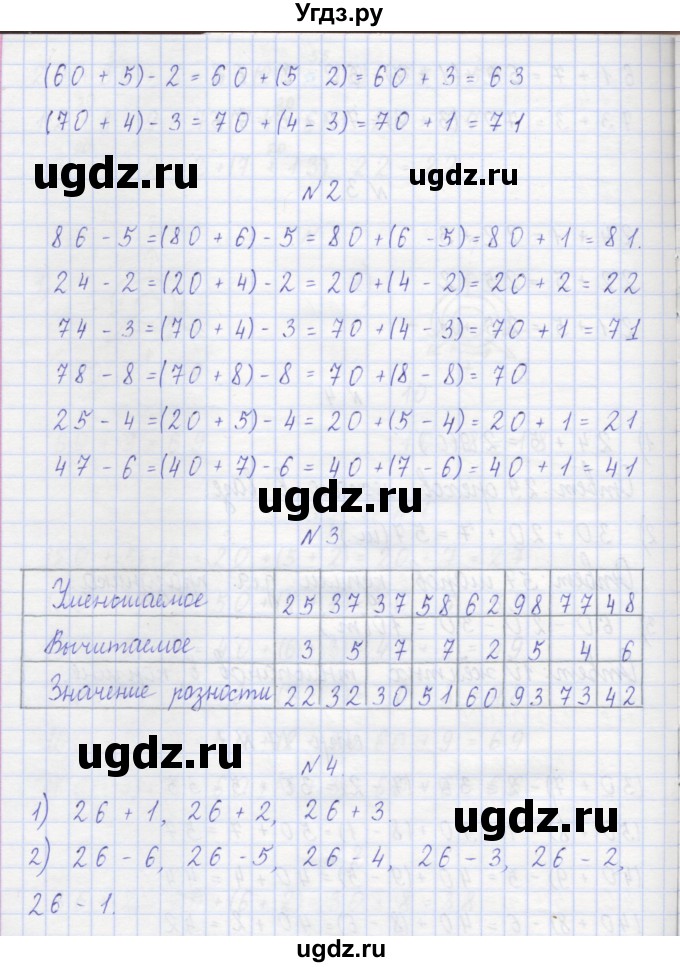 Угдз.ру
(60 + 5) - 2 = 60 + (5 2) = 60 + 3 = 63
(70 + 4) - 3 = 70 + (4 - 3) = 70 + 1 = 71
ugdz.ru ugdz.ru
N 2
86 - 5 = (80 + 6) - 5 = 80 + (6 - 5) = 80 + 1 = 81.
24 - 2 = (20 + 4) - 2 = 20 + (4 - 2) = 20 + 2 = 22
74 - 3 = (70 + 4) - 3 = 70 + (4 - 3) = 70 + 1 = 71
78 - 8 = (70 + 8) - 8 = 70 + (8 - 8) = 70
25 - 4 = (20 + 5) - 4 = 20 + (5 - 4) = 20 + 1 = 21
47 - 6 = (40 + 7) - 6 = 40 + (7 - 6) = 40 + 1 = 41
ugdz.ru
N 3
Уменьшаемое 25 37 37 58 62 98 77 48
Вычитаемое 3 5 7 7 2 5 4 6
Значение разности 22 32 30 51 60 93 73 42
ugdz.ru
N 4.
1) 26 + 1, 26 + 2, 26 + 3.
ugdz.ru
2) 26 - 6, 26 - 5, 26 - 4, 26 - 3, 26 - 2,
26 - 1.
ugdz.ru